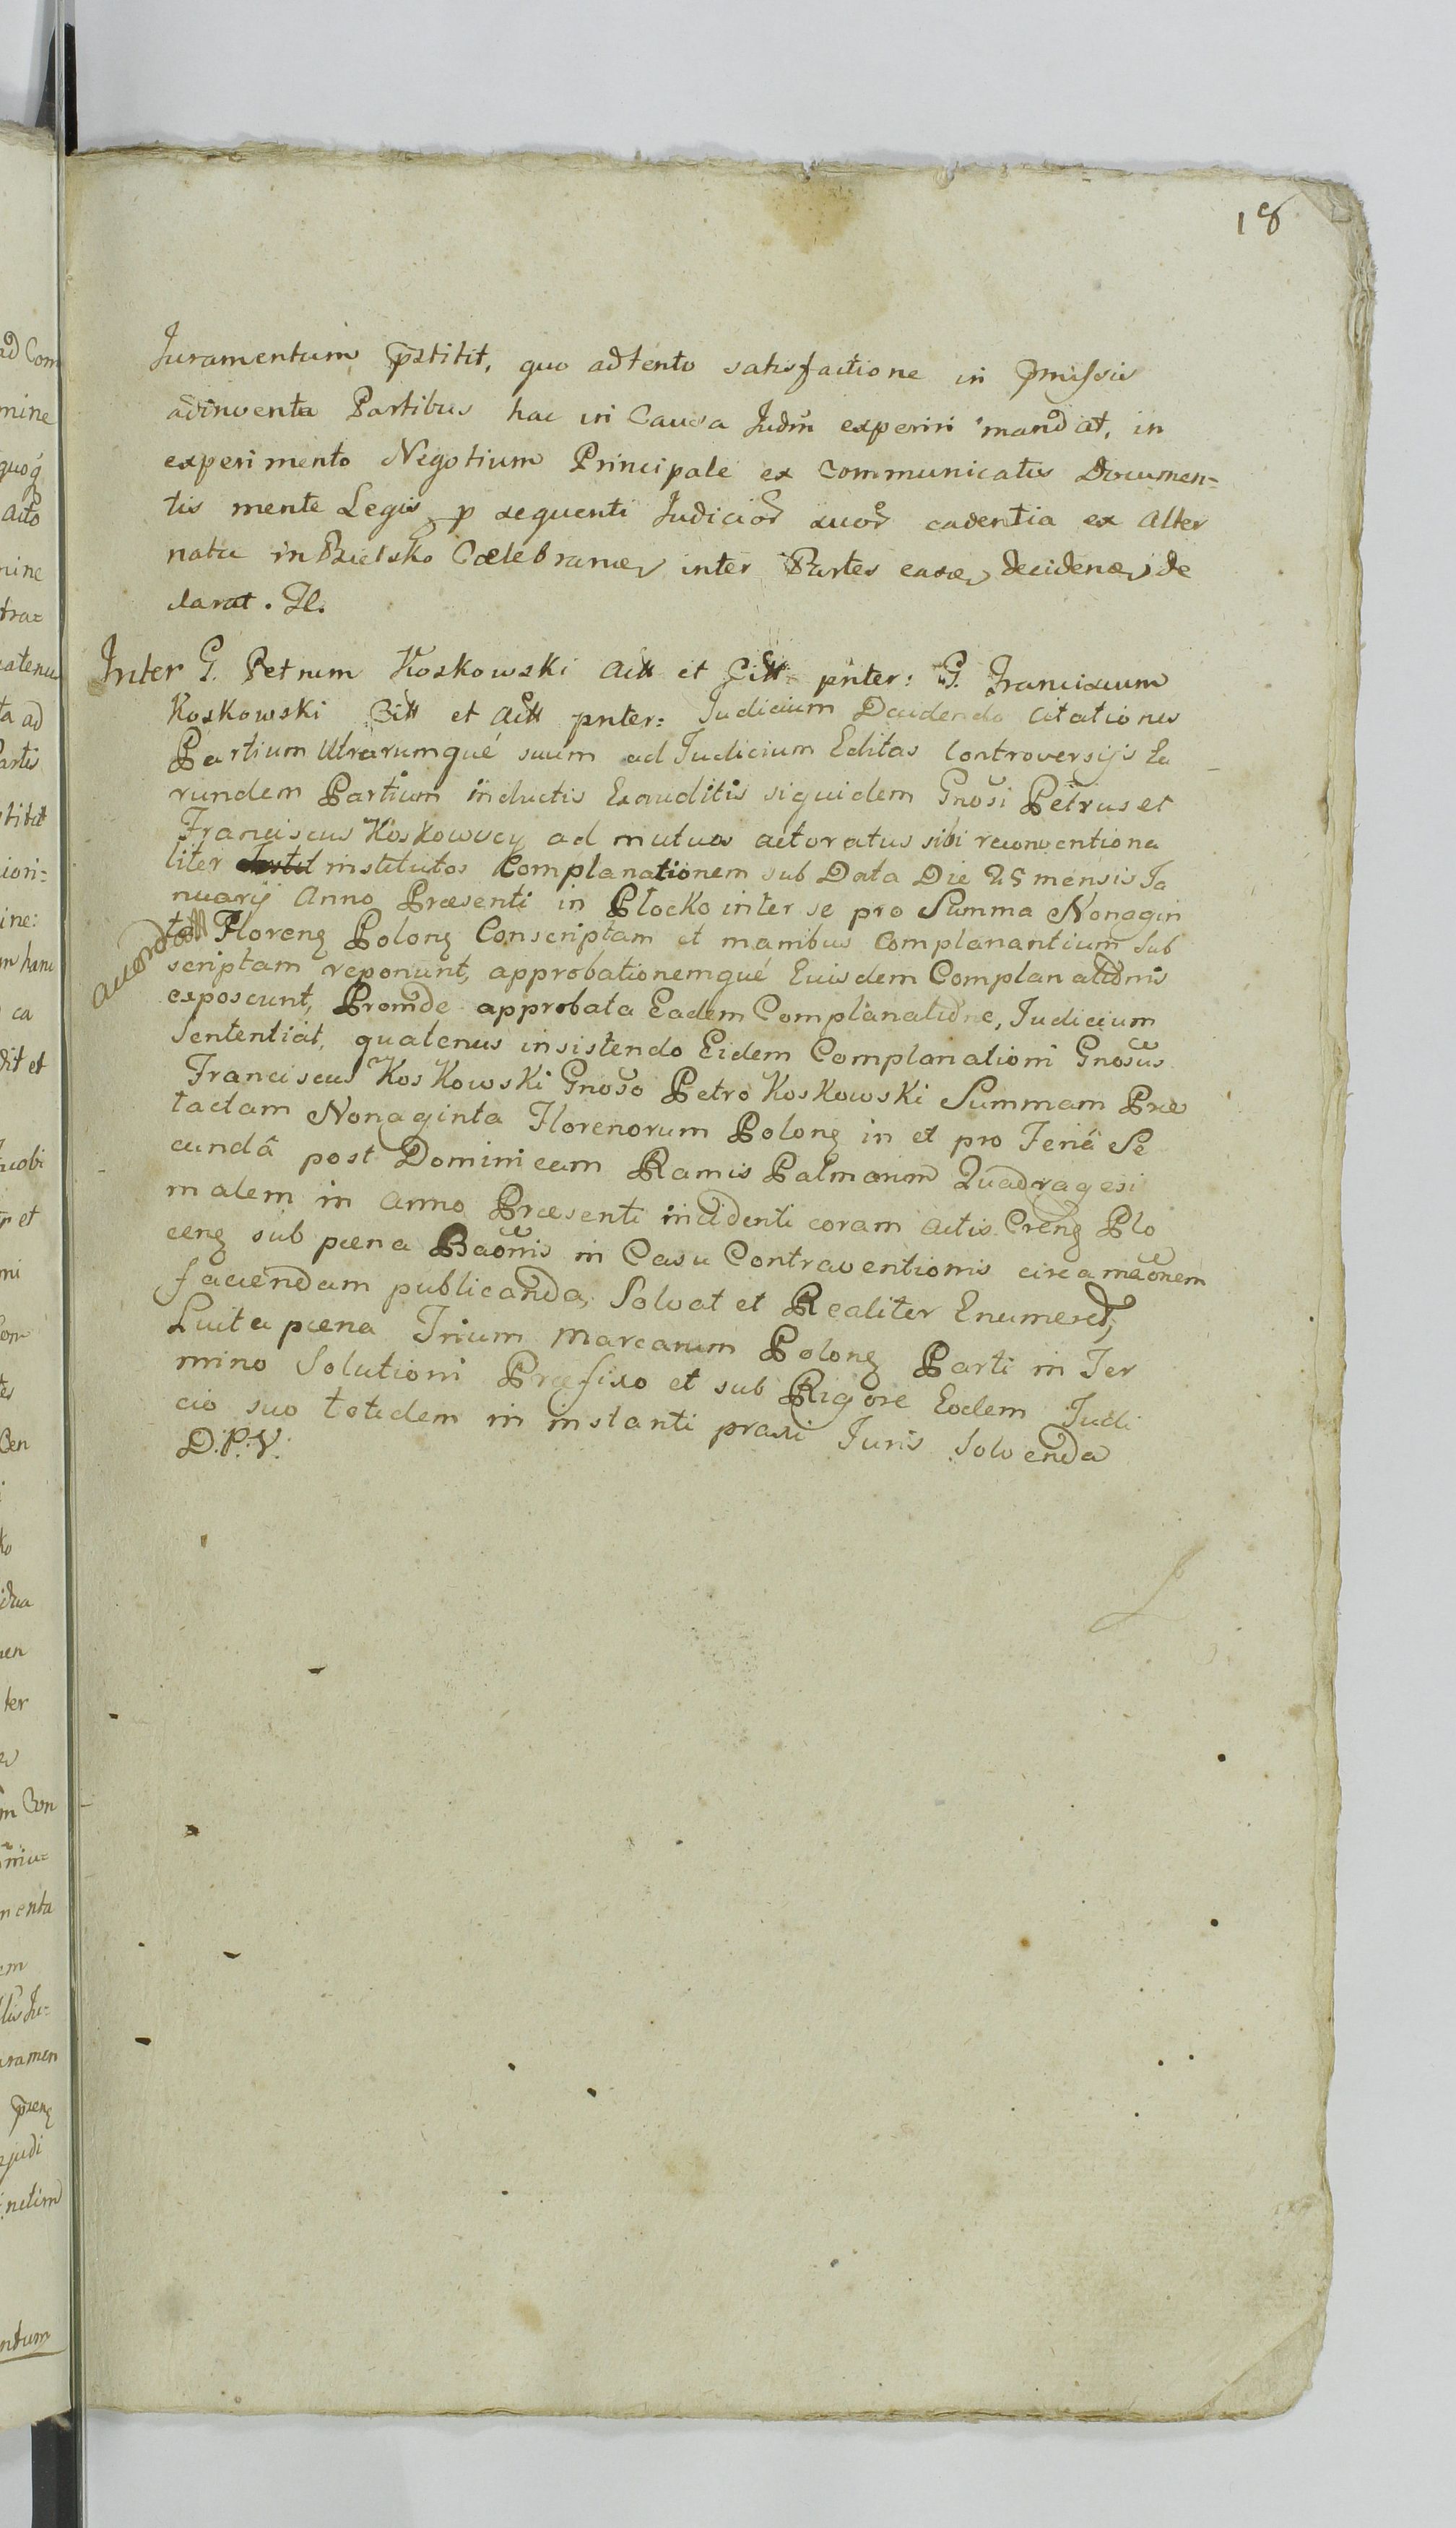 18
Juramentum p̄stitit, quo adtento satisfactione in p̄missis
adinventa Partibus hac in Causa Judm̃ experiri mandat, in
experimento Negotium Principale ex communicatis Documen=
tis mente Legis p sequenti Judicior suor cadentia ex Alter
nata in Bielsko Cælebranæ, inter Partes easæ, decidenæ, de
clarat. Pl.
Inter G. Petrum Koskowski Act et Citt pnter: G. Franciscum
Koskowski Citt et Act pnter: Judicium Decidendo citationes
Partium Utrarumqué suum ad Judicium Editas Controversijs Ea
rundem Partium inductis Exauditis siquidem Gnosi Petrus et
Franciscus Koskowscy ad mutuos actoratus sibi reconventiona
liter institutos Complanationem sub Data Die 25 mensis Ja
nuarij Anno Præsenti in Płocko inter se pro Summa Nonagin
ta Floreng Polong Conscriptam et manibus Complanantium Sub
scriptam reponunt, approbationemqué Euisdem Complanationis
exposcunt, Proinde approbata Eadem Complanatione, Judicium
Sententiat, quatenus insistendo Eidem Complanationi Gnosus
Franciscus Koskowski Gnoso Petro Koskowski Summam Præ
tactam Nonaginta Florenorum Polong in et pro Feriâ Se
cundâ post Dominicam Ramis Palmarum Quadragesi
malem in anno Præsenti incidenti coram actis Creng Plo
ceng sub pæna Baonis in Casu Contraventionis circa maonem
faciendam publicanda, Solvat et Realiter Enumeret,
Luita pæna Trium Marcarum Polong Parti in Ter
mino Solutioni Præfixo et sub Rigore Eodem Judi
cio suo totidem in instanti praxi Juris Solvenda
D.P.V.